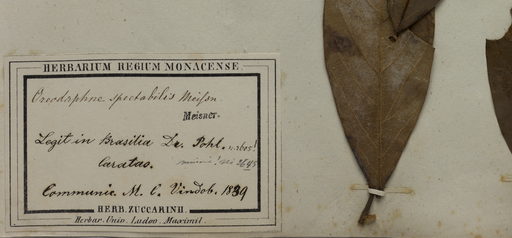 HERBARIUM REGIUM MONACENSE.
Oreodaphne spectabilis Meißn.
Meisner.
Legit in Brasilia Dr. Pohl.
Caratas.
Communic. M. C. Vindob. 1839
HERB. ZUCCARINII.
Herbar. Univ. Ludov. Maximil.